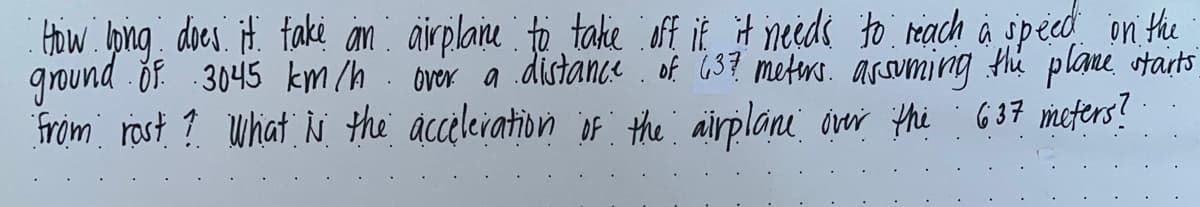 How long does it take an airplane to take off if it needs to reach a speed on the
ground of 3045 km/h over a distance of 637 meters. assuming the plane starts
from rost ? What is the acceleration of the airplane over the 637 meters?